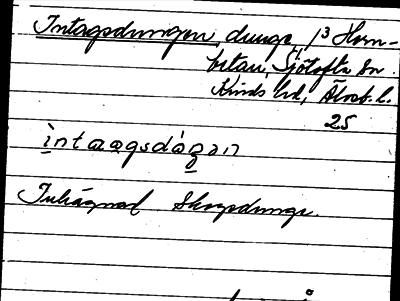 Intagsdungen, dunge, 1³ Horn-
betan, Sjötofta sn.
Kinds hd, Älvsb. l.
25
intaagsdåŋan
Inhägnad skogsdunge.